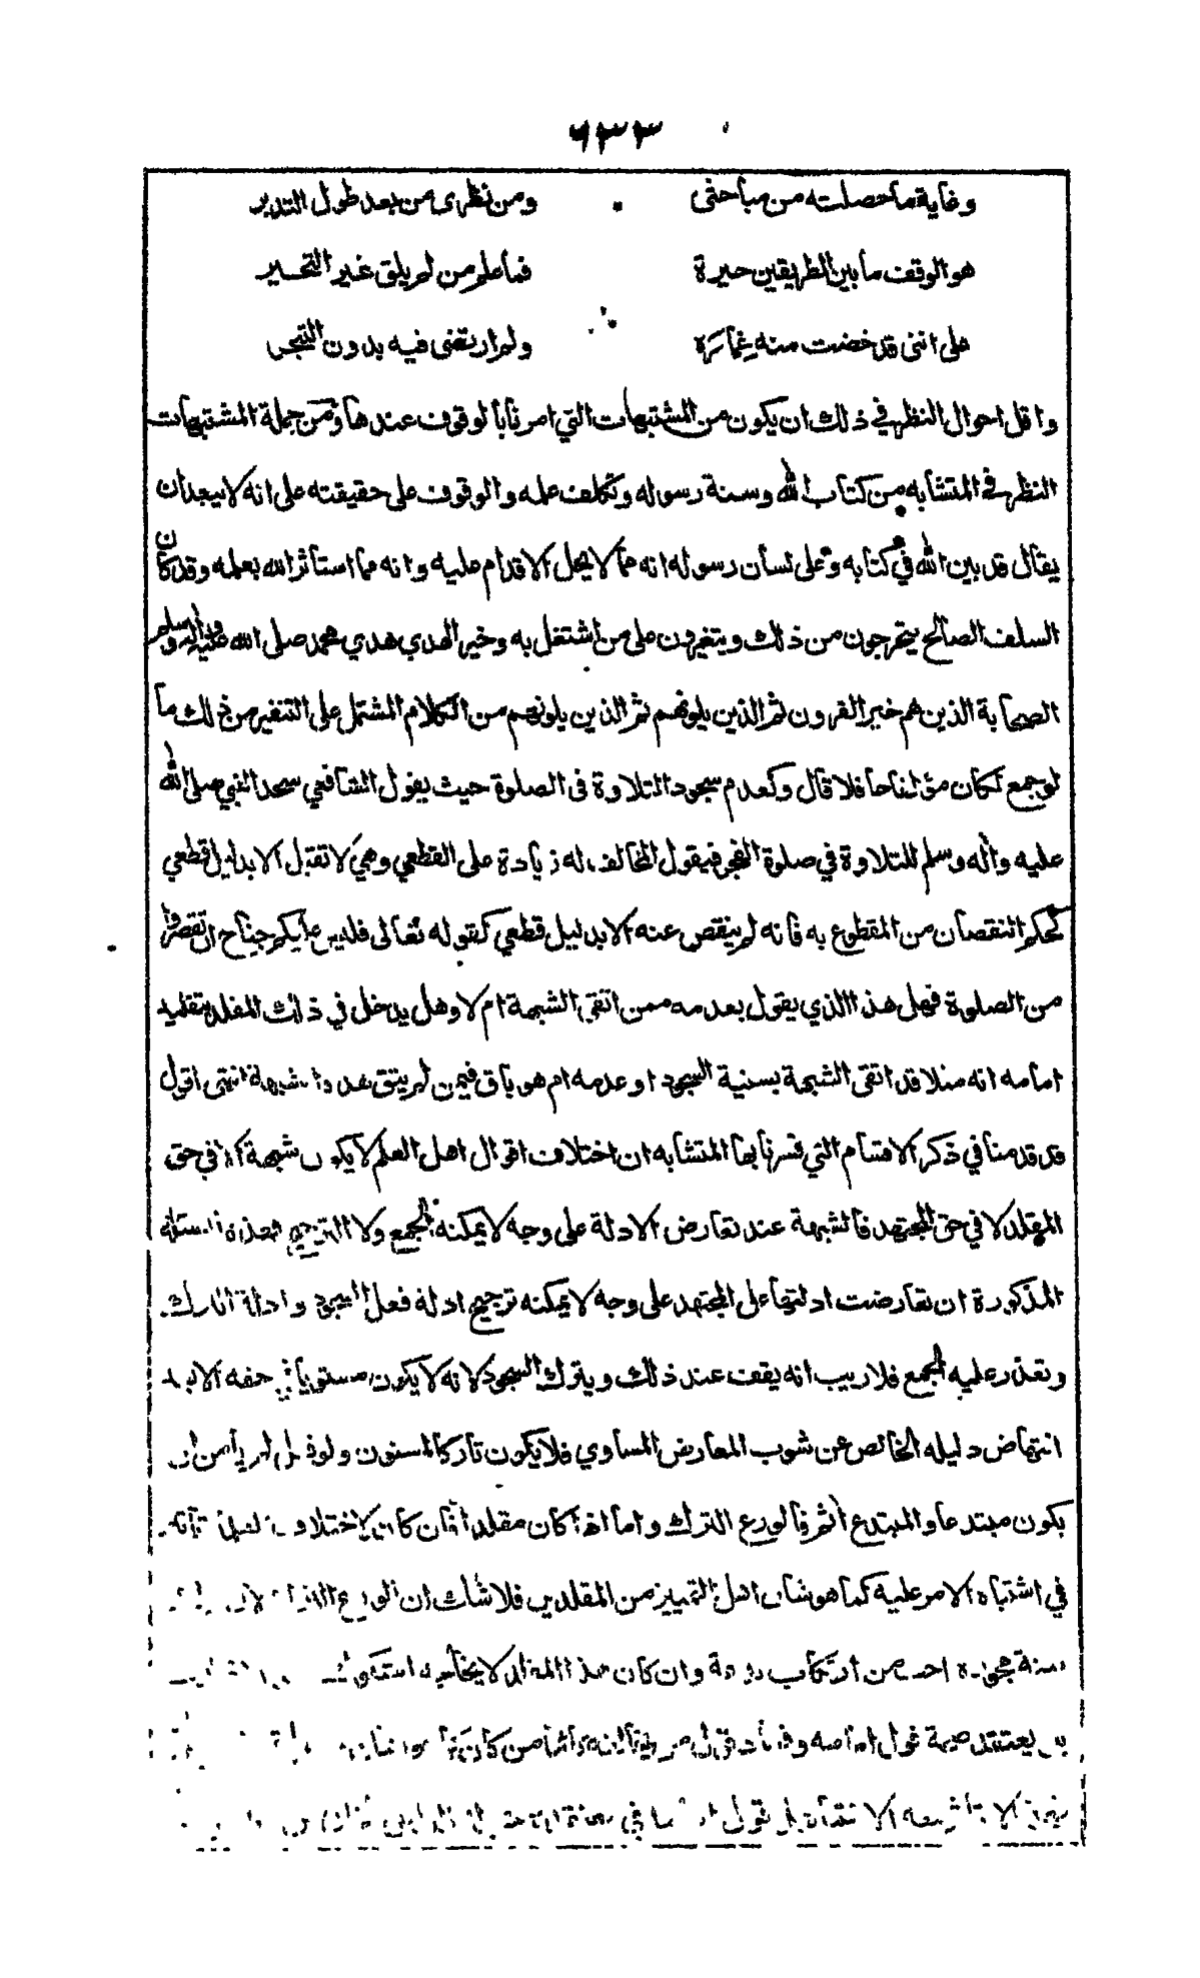 ٦٣٣
وغاية ما حصلته من مباحثي ومن نظري من بعد طول التدبر
هو الوقف ما بين الطريقين حيرة فما علم من لم يلق غير التحير
على انني قد خضت منه غماره ولم ارتض فيه بدون التبحر
واقل احوال النظر في ذلك ان يكون من المشتبهات التي امرنا بالوقوف عندها ومن جملة المشتبهات
النظر في المتشابه من كتاب الله وسنة رسوله وتكلف علمه والوقوف على حقيقته على انه لا يبعد ان
يقال قد بين الله في كتابه وعلى لسان رسوله انه مما لا يحل الاقدام عليه وانه مما استأثر الله بعلمه وقد كان
السلف الصالح يتحرجون من ذلك وينفرون على من اشتغل به وخير الهدي هدي محمد صلى الله عليه واله وسلم
الصحابة الذين هم خير القرون ثم الذين يلونهم ثم الذين يلونهم من الكلام المشتمل على التنفير من ذلك ما
لو جمع لكان مؤلفا حافلا قال وكعدم سجود التلاوة في الصلوة حيث يقول الشافعي سجد النبي صلى الله
عليه واله وسلم للتلاوة في صلوة الفجر فيقول المخالف له زيادة على القطعي وهي لا تقبل الا بدليل قطعي
كحكم النقصان من المقطوع به فانه لم ينقص عنه الا بدليل قطعي كقوله تعالى فليس عليكم جناح ان تقصروا
من الصلوة فهل هذا الذي يقول بعدمه ممن اتقى الشبهة ام لا وهل يدخل في ذلك المقلد بتقليد
امامه انه مثلا قد اتقى الشبهة بسنية السجود او عدمه ام هو باق فيمن لم يتق هذه الشبهة انتهى اقول
قد قدمنا في ذكر الاقسام التي فسرنا بها المتشابه ان اختلاف اقوال اهل العلم لا يكون شبهة الا في حق
المقلد لا في حق المجتهد فالشبهة عند تعارض الادلة على وجه لا يمكنه الجمع ولا الترجيح فهذه المسئلة
المذكورة ان تعارضت ادلتها على المجتهد على وجه لا يمكنه ترجيح ادلة فعل السجود وادلة التارك
وتعذر عليه الجمع فلا ريب انه يقف عند ذلك ويترك السجود لانه لا يكون مسنونا في حقه الا بعد
انتهاض دليله الخالص عن شوب المعارض المساوي فلا يكون تاركا لمسنون ولو فعل لم يأمن ان
يكون مبتدعا والمبتدع آثم فالورع الترك واما اذا كان مقلدا فان كان لاختلاف العلماء تأثير
في اشتباه الامر عليه كما هو شان اهل التمييز من المقلدين فلا شك ان الورع
سنة احسن من ارتكاب بدعة وان كان هذا المقلد لا يخالجه
بل يعتقد صحة قول امامه وفساد قول من خالفه